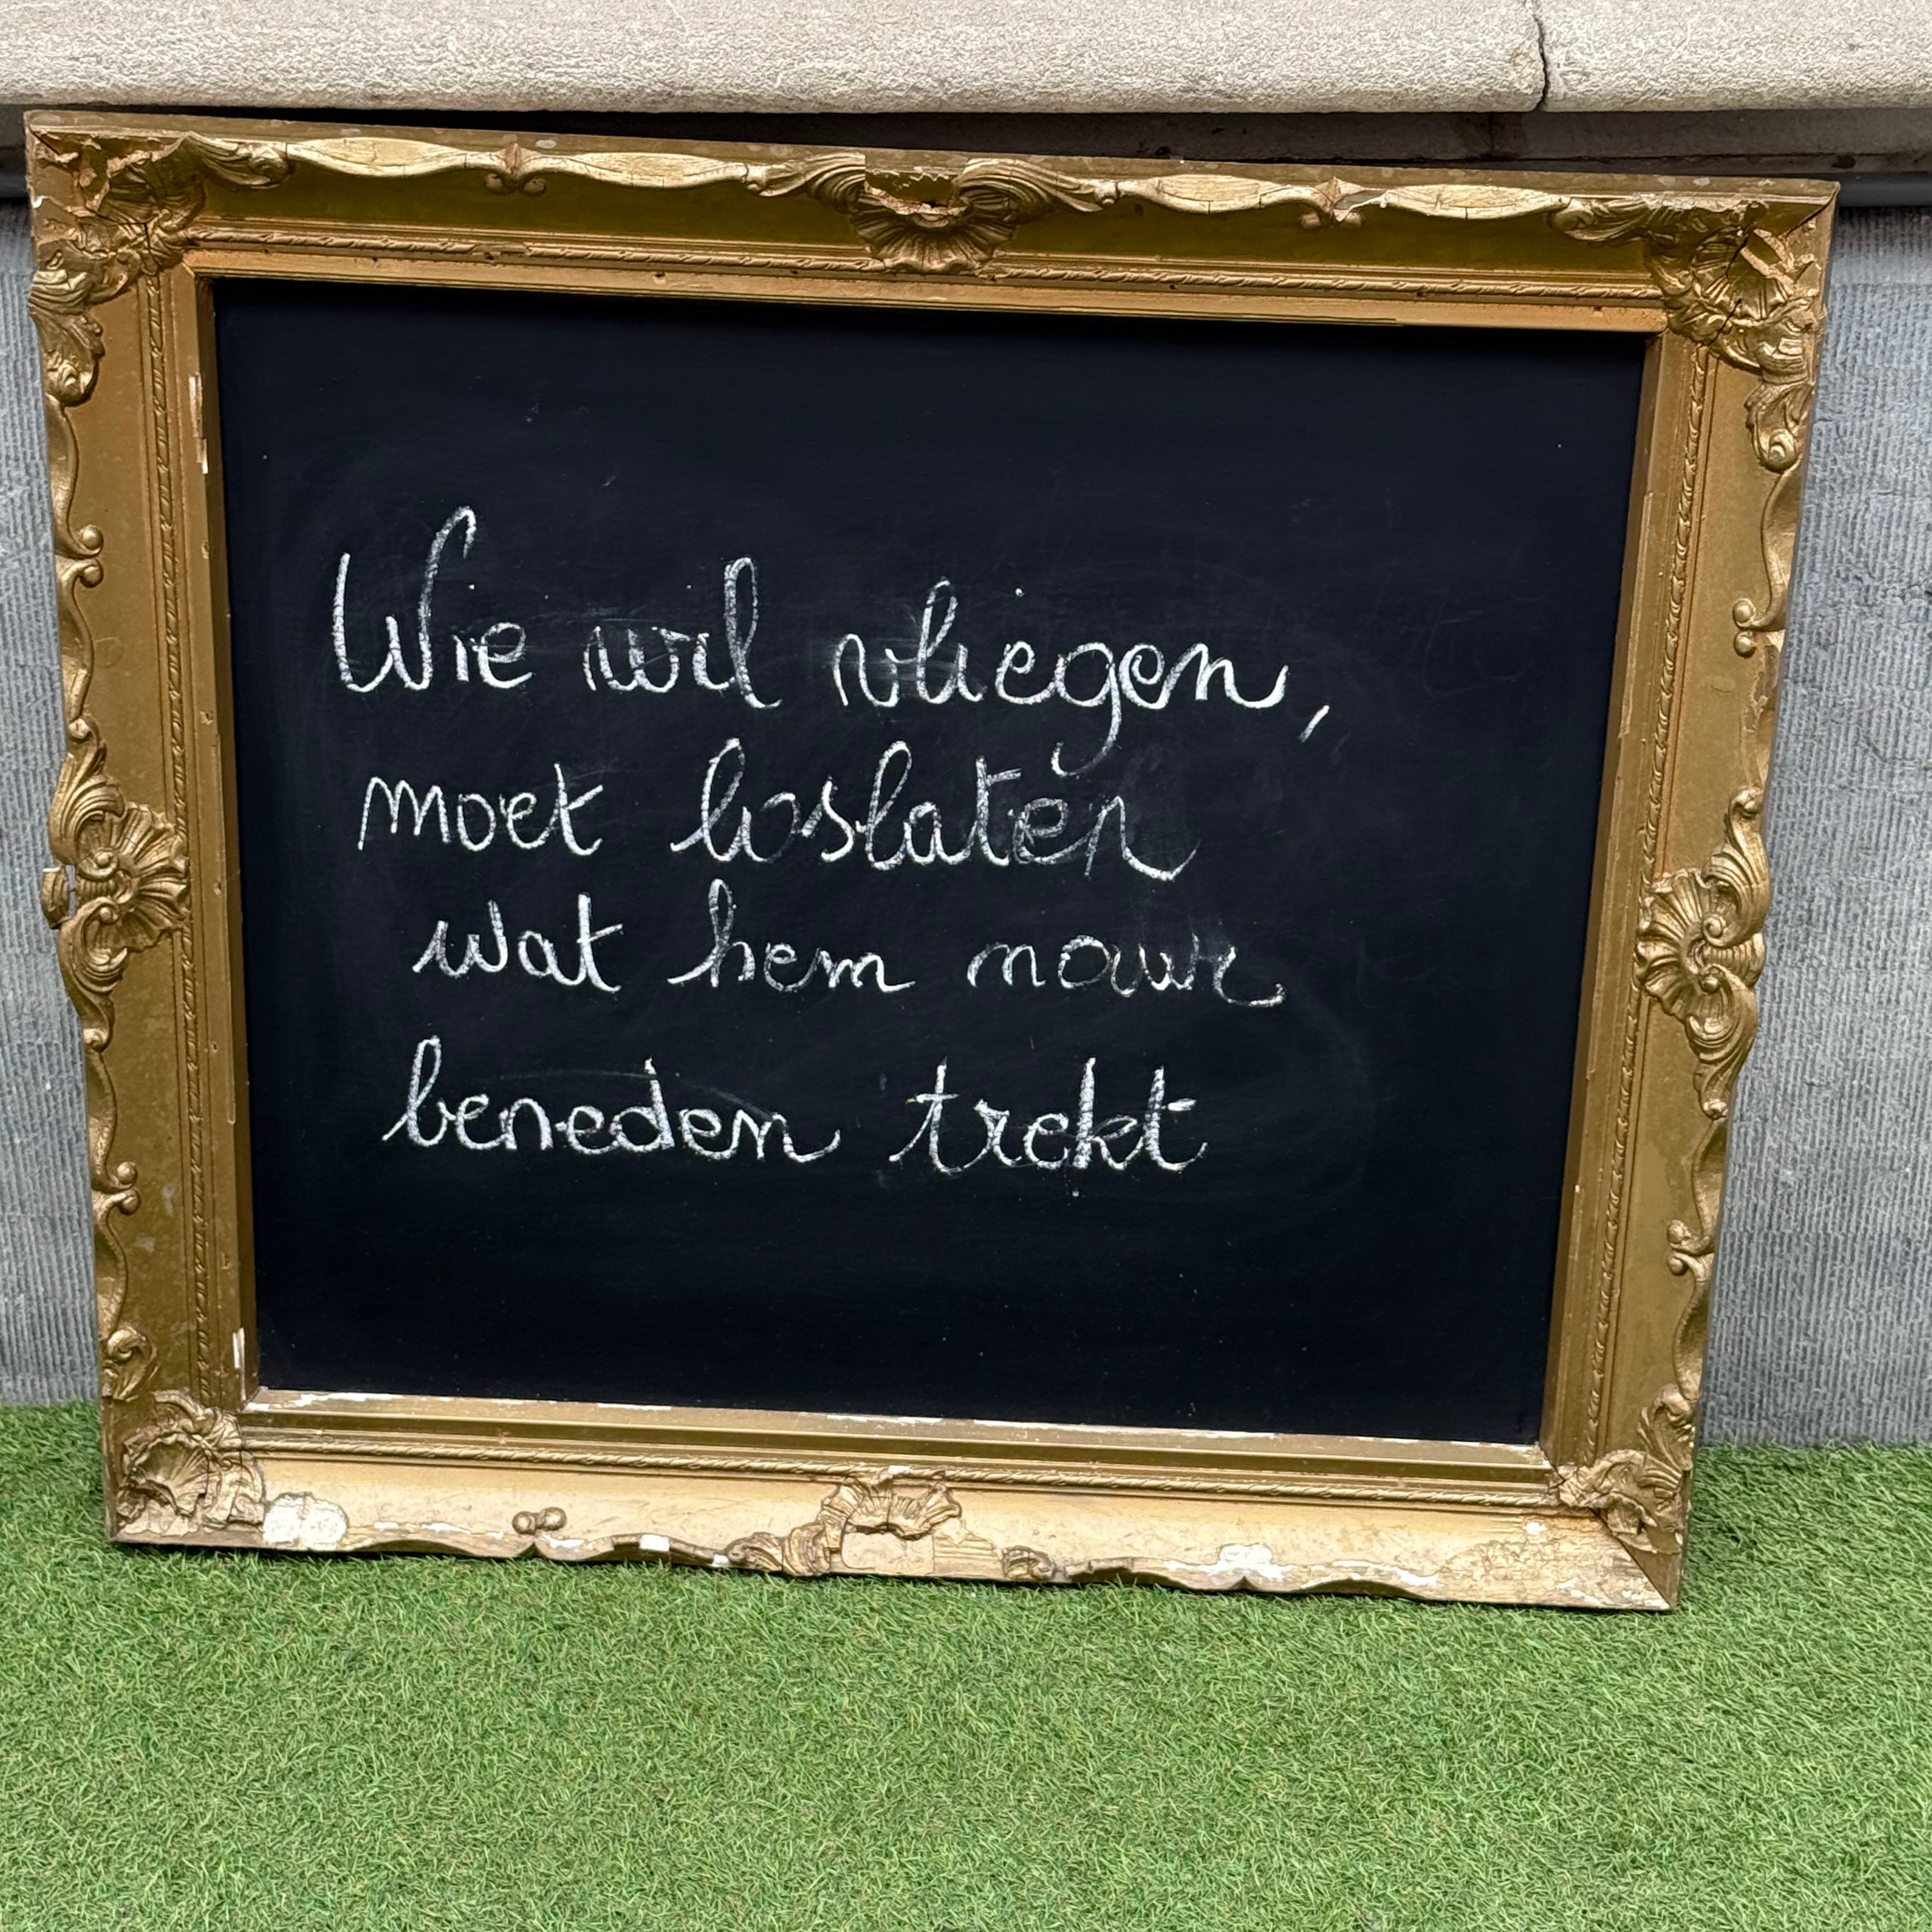 Wie wil vliegen,
moet loslaten
wat hem naar
beneden trekt